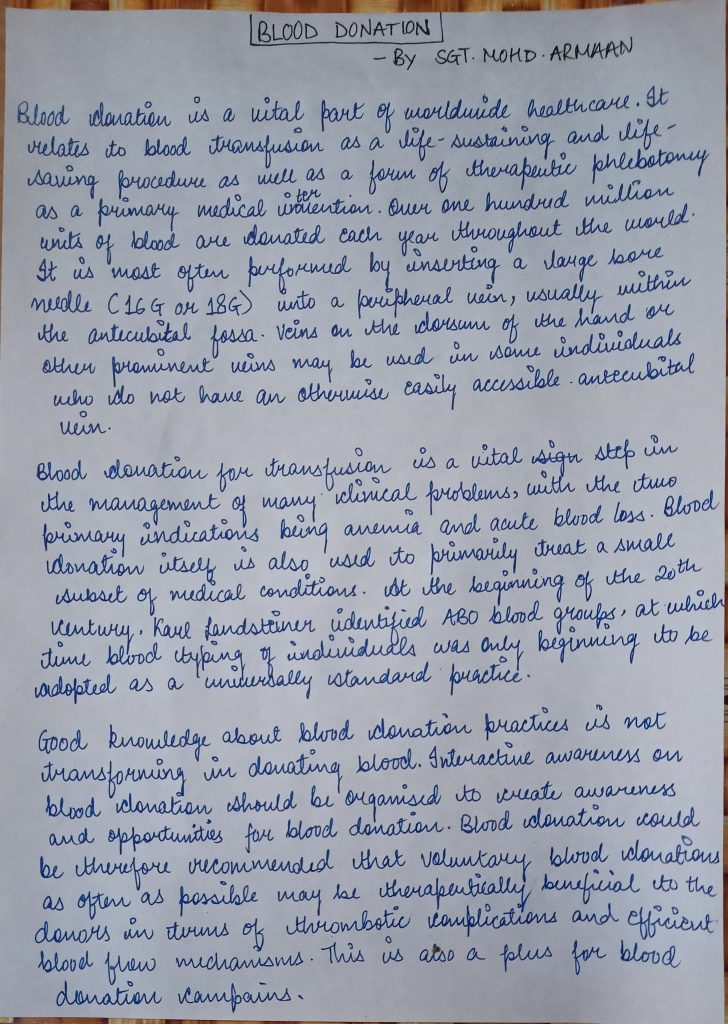 BLOOD DONATION
- By SGT. MOHD. ARMAAN
Blood donation is a vital part of worldwide healthcare. It
relates to blood transfusion as a life-sustaining and life-
saving procedure as well as a form of therapeutic phlebotomy
as a primary medical intervention. Over one hundred million
units of blood are donated each year throughout the world.
It is most often performed by inserting a large bore
needle (16G or 18G) into a peripheral vein, usually within
the antecubital fossa. Veins on the dorsum of the hand or
other prominent veins may be used in some individuals
who do not have an otherwise easily accessible antecubital
vein.
Blood donation for transfusion is a vital sign step in
the management of many clinical problems, with the two
primary indications being anemia and acute blood loss. Blood
donation itself is also used to primarily treat a small
subset of medical conditions. At the beginning of the 20th
century, Karl Landsteiner identified ABO blood groups, at which
time blood typing of individuals was only beginning to be
adopted as a universally standard practice.
Good knowledge about blood donation practices is not
transforming in donating blood. Interactive awareness on
blood donation should be organised to create awareness
and opportunities for blood donation. Blood donation could
be therefore recommended that voluntary blood donations
as often as possible may be therapeutically beneficial to the
donors in terms of thrombotic complications and efficient
blood flow mechanisms. This is also a plus for blood
donation campains.